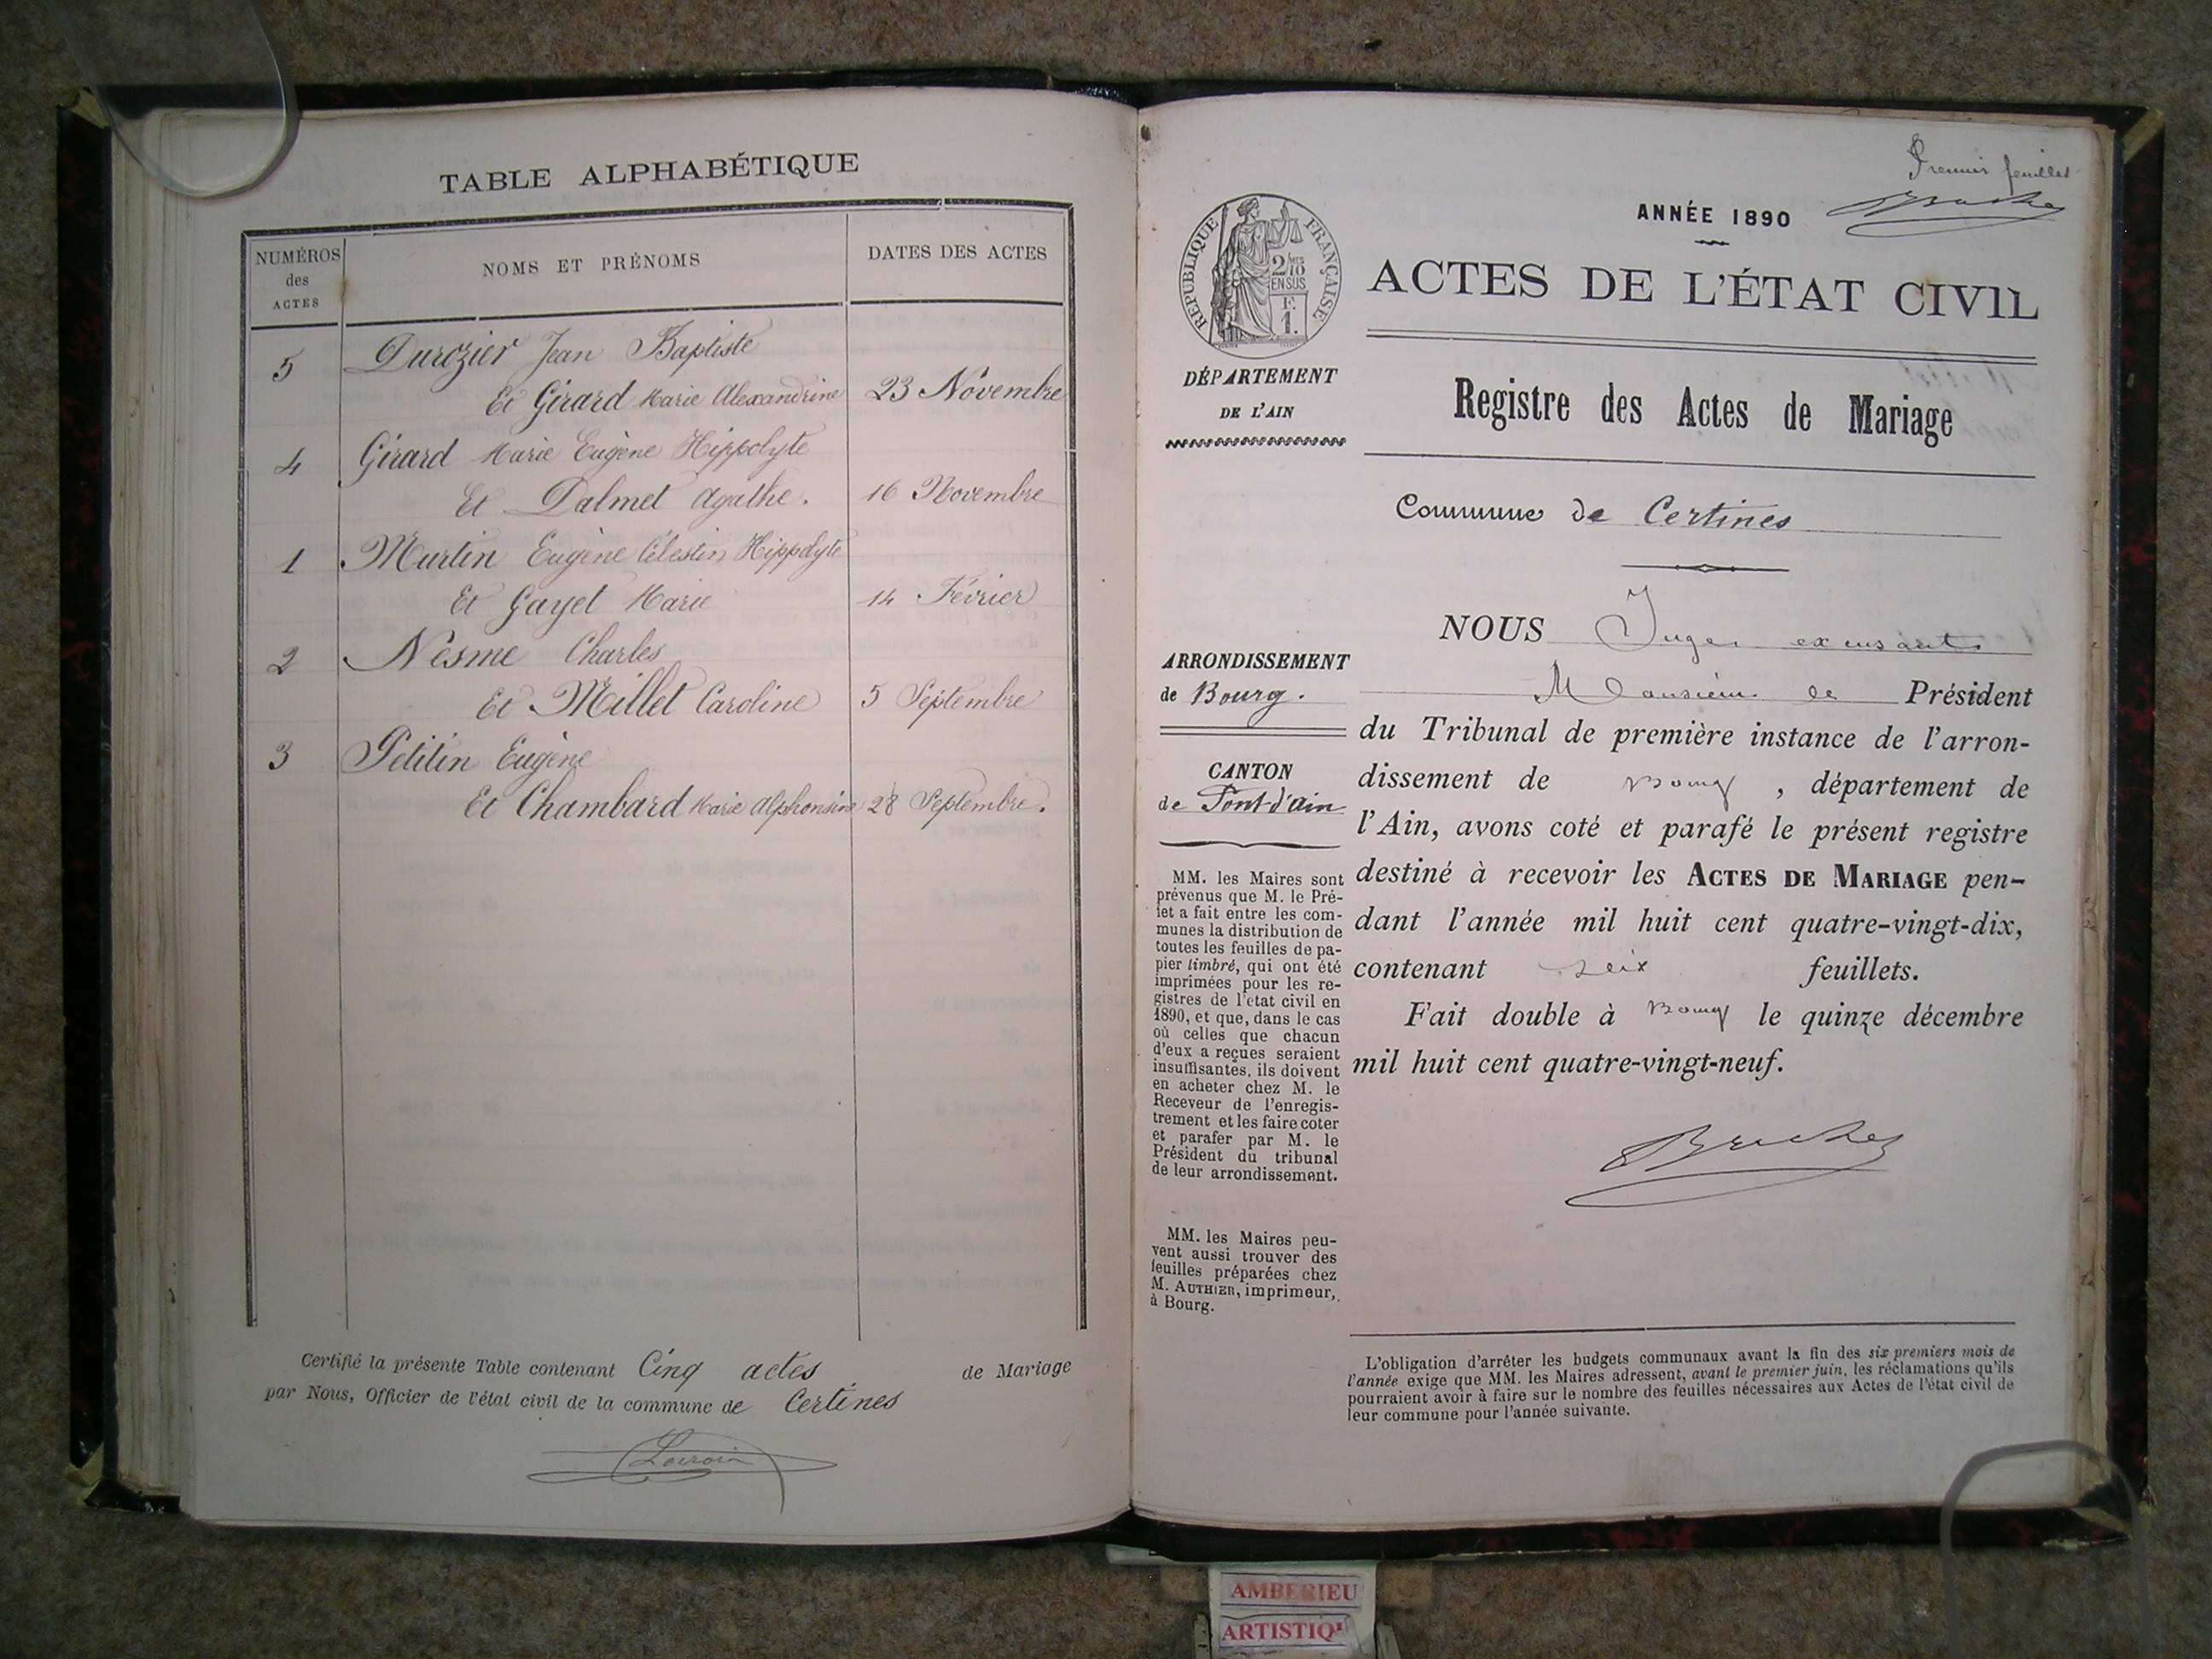 TABLE ALPHABÉTIQUE
NUMÉROS des ACTES
NOMS ET PRÉNOMS
DATES DES ACTES
5 Durozier Jean Baptiste
Et Girard Marie Alexandrine 23 Novembre
4 Girard Marie Eugène Hippolyte
Et Dalmet Agathe. 16 Novembre
1 Martin Eugène Célestin Hippolyte
Et Gayet Marie 14 Février
2 Nesme Charles
Et Millet Caroline 5 Septembre
3 Petitin Eugène
Et Chambard Marie Alphonsine 28 Septembre.
Certifié la présente Table contenant Cinq actes de Mariage
par Nous, Officier de l'état civil de la commune de Certines
Premier feuillet
ANNÉE 1890
RÉPUBLIQUE FRANÇAISE
2/10 MES
EN SUS
F.
1.
ACTES DE L'ÉTAT CIVIL
DÉPARTEMENT
DE L'AIN
Registre des Actes de Mariage
Commune de Certines
ARRONDISSEMENT
de Bourg.
CANTON
de Pont d'ain
MM. les Maires sont
prévenus que M. le Pré-
fet a fait entre les com-
munes la distribution de
toutes les feuilles de pa-
pier timbré, qui ont été
imprimées pour les re-
gistres de l'état civil en
1890, et que, dans le cas
où celles que chacun
d'eux a reçues seraient
insuffisantes, ils doivent
en acheter chez M. le
Receveur de l'enregis-
trement et les faire coter
et parafer par M. le
Président du tribunal
de leur arrondissement.
MM. les Maires peu-
vent aussi trouver des
feuilles préparées chez
M. AUTHIER, imprimeur,
à Bourg.
NOUS Juge
Monsieur le Président
du Tribunal de première instance de l'arron-
dissement de Bourg, département de
l'Ain, avons coté et parafé le présent registre
destiné à recevoir les ACTES DE MARIAGE pen-
dant l'année mil huit cent quatre-vingt-dix,
contenant feuillets.
Fait double à Bourg le quinze décembre
mil huit cent quatre-vingt-neuf.
L'obligation d'arrêter les budgets communaux avant la fin des six premiers mois de
l'année exige que MM. les Maires adressent, avant le premier juin, les réclamations qu'ils
pourraient avoir à faire sur le nombre des feuilles nécessaires aux Actes de l'état civil de
leur commune pour l'année suivante.
AMBERIEU
ARTISTIQ